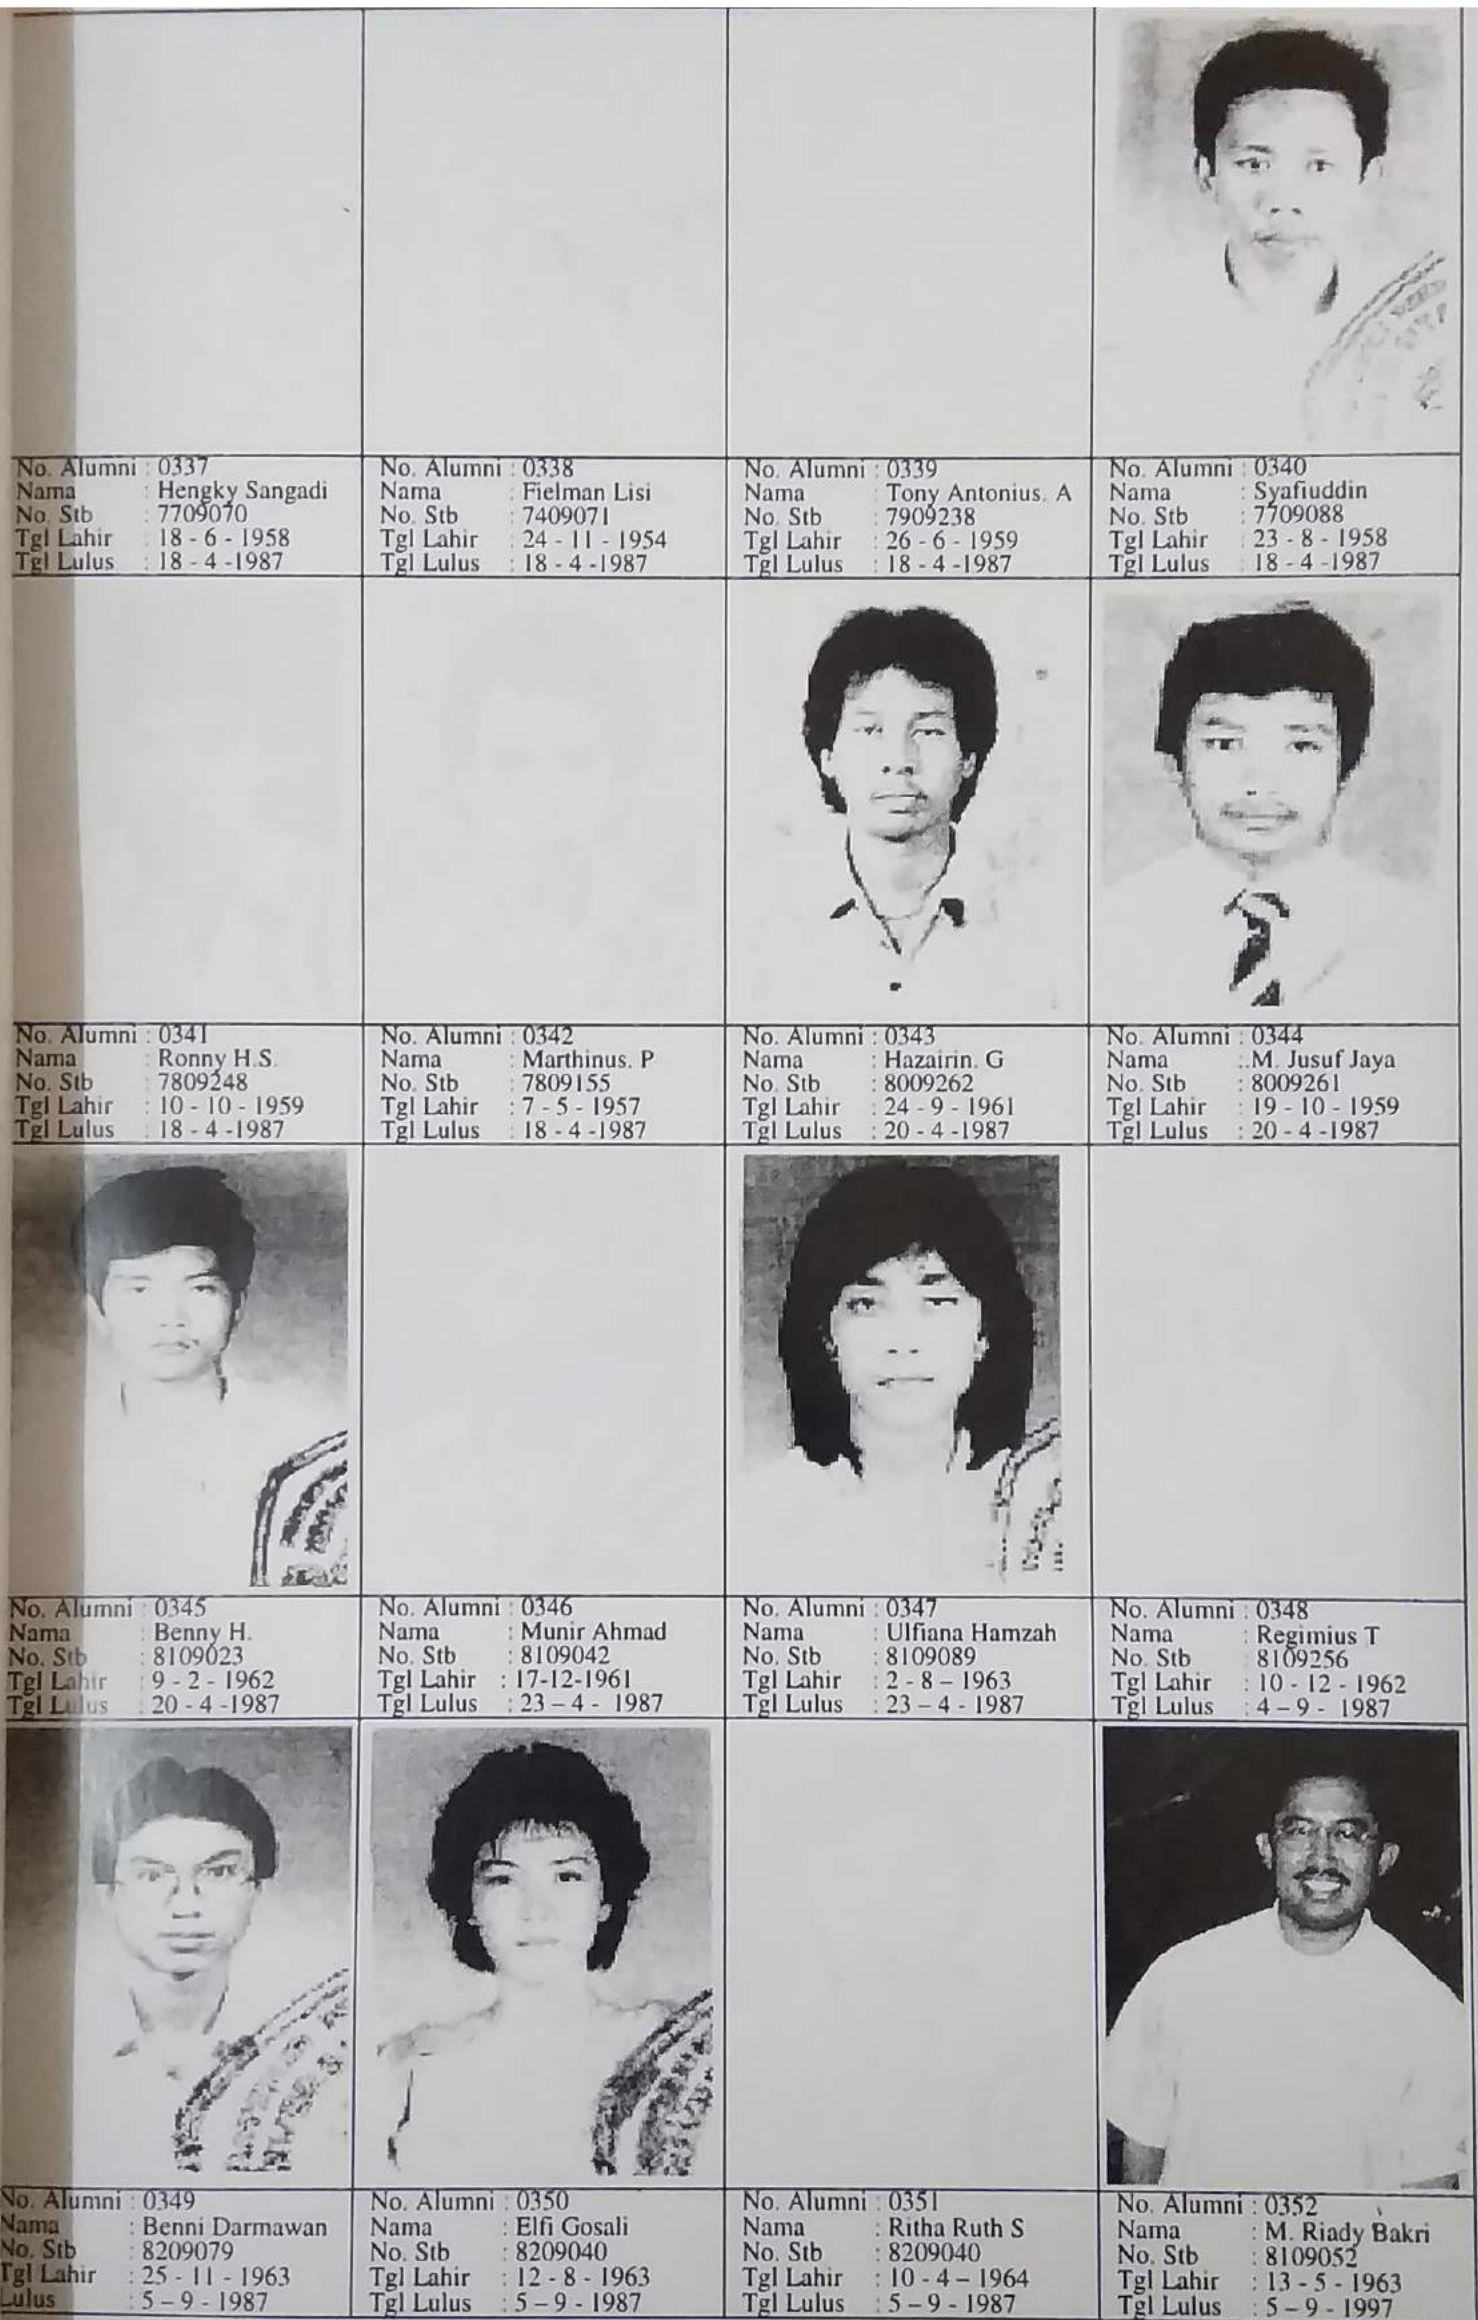 No. Alumni : 0337
Nama : Hengky Sangadi
No. Stb : 7709070
Tgl Lahir : 18 - 6 - 1958
Tgl Lulus : 18 - 4 -1987
No. Alumni : 0338
Nama : Fielman Lisi
No. Stb : 7409071
Tgl Lahir : 24 - 11 - 1954
Tgl Lulus : 18 - 4 -1987
No. Alumni : 0339
Nama : Tony Antonius. A
No. Stb : 7909238
Tgl Lahir : 26 - 6 - 1959
Tgl Lulus : 18 - 4 -1987
No. Alumni : 0340
Nama : Syafiuddin
No. Stb : 7709088
Tgl Lahir : 23 - 8 - 1958
Tgl Lulus : 18 - 4 -1987
No. Alumni : 0341
Nama : Ronny H.S.
No. Stb : 7809248
Tgl Lahir : 10 - 10 - 1959
Tgl Lulus : 18 - 4 -1987
No. Alumni : 0342
Nama : Marthinus. P
No. Stb : 7809155
Tgl Lahir : 7 - 5 - 1957
Tgl Lulus : 18 - 4 -1987
No. Alumni : 0343
Nama : Hazairin. G
No. Stb : 8009262
Tgl Lahir : 24 - 9 - 1961
Tgl Lulus : 20 - 4 -1987
No. Alumni : 0344
Nama :.M. Jusuf Jaya
No. Stb : 8009261
Tgl Lahir : 19 - 10 - 1959
Tgl Lulus : 20 - 4 -1987
No. Alumni : 0345
Nama : Benny H.
No. Stb : 8109023
Tgl Lahir : 9 - 2 - 1962
Tgl Lulus : 20 - 4 -1987
No. Alumni : 0346
Nama : Munir Ahmad
No. Stb : 8109042
Tgl Lahir : 17-12-1961
Tgl Lulus : 23 – 4 - 1987
No. Alumni : 0347
Nama : Ulfiana Hamzah
No. Stb : 8109089
Tgl Lahir : 2 - 8 – 1963
Tgl Lulus : 23 – 4 - 1987
No. Alumni : 0348
Nama : Regimius T
No. Stb : 8109256
Tgl Lahir : 10 - 12 - 1962
Tgl Lulus : 4 – 9 - 1987
No. Alumni : 0349
Nama : Benni Darmawan
No. Stb : 8209079
Tgl Lahir : 25 - 11 - 1963
Lulus : 5 – 9 - 1987
No. Alumni : 0350
Nama : Elfi Gosali
No. Stb : 8209040
Tgl Lahir : 12 - 8 - 1963
Tgl Lulus : 5 – 9 - 1987
No. Alumni : 0351
Nama : Ritha Ruth S
No. Stb : 8209040
Tgl Lahir : 10 - 4 – 1964
Tgl Lulus : 5 – 9 - 1987
No. Alumni : 0352
Nama : M. Riady Bakri
No. Stb : 8109052
Tgl Lahir : 13 - 5 - 1963
Tgl Lulus : 5 – 9 - 1997